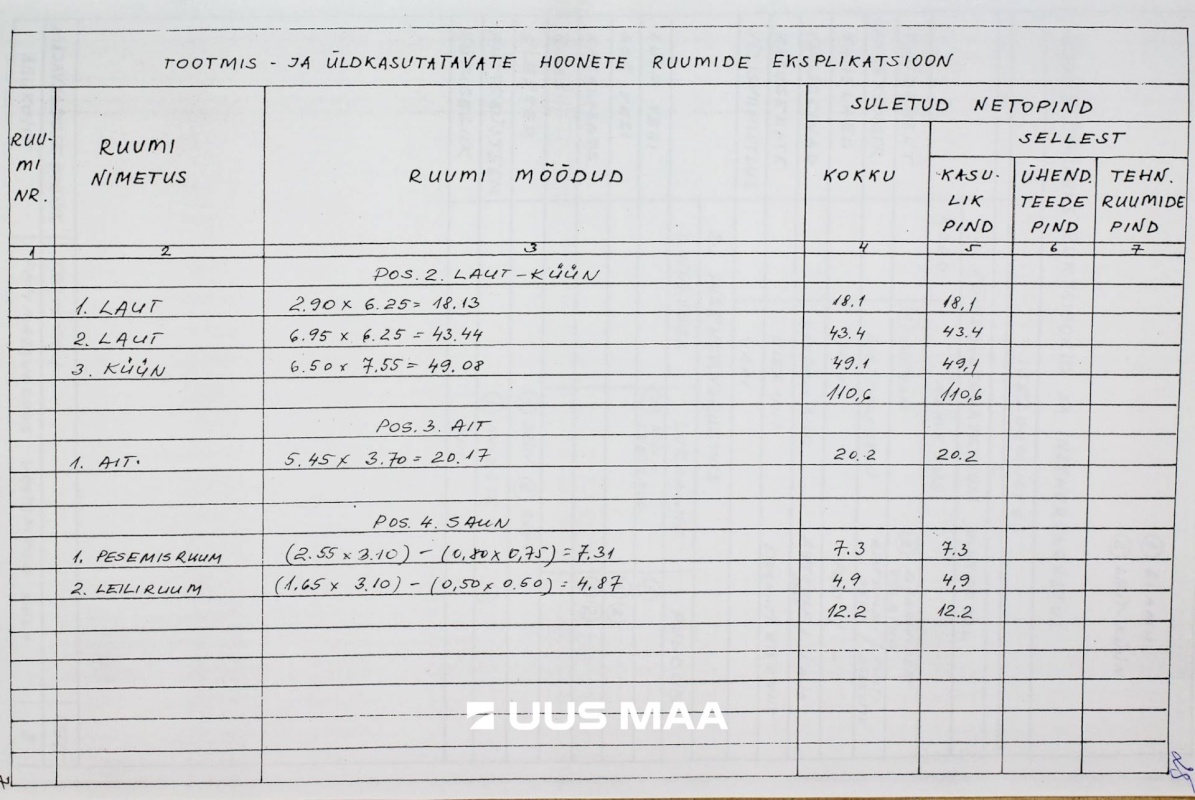 TOOTMIS - JA ÜLDKASUTATAVATE HOONETE RUUMIDE EKSPLIKATSIOON
RUU-
MI
NR.
RUUMI
NIMETUS
RUUMI MÕÕDUD
SULETUD NETOPIND
KOKKU
SELLEST
KASU-
LIK
PIND
ÜHEND.
TEEDE
PIND
TEHN.
RUUMIDE
PIND
1 2 3 4 5 6 7
POS. 2. LAUT - KÜÜN
1. LAUT 2.90 x 6.25 = 18.13 18.1 18,1
2. LAUT 6.95 x 6.25 = 43.44 43.4 43.4
3. KÜÜN 6.50 x 7.55 = 49.08 49.1 49,1
110,6 110,6
POS. 3. AIT
1. AIT. 5.45 x 3.70 = 20.17 20.2 20.2
POS. 4. SAUN
1. PESEMISRUUM (2.55 x 3.10) - (0,80 x 0,75) = 7.31 7.3 7.3
2. LEILIRUUM (1.65 x 3.10) - (0,50 x 0.50) = 4,87 4,9 4,9
12.2 12.2
UUS MAA